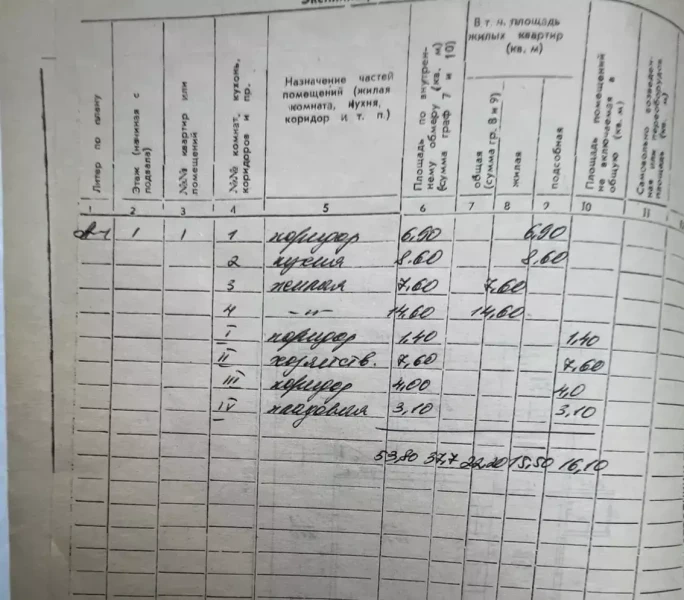 Литер по плану
Этаж (начиная с подвала)
№№ квартир или помещений
№№ комнат, кухонь, коридоров и пр.
Назначение частей помещений (жилая комната, кухня, коридор и т. п.)
Площадь по внутреннему обмеру (кв. м) (сумма граф 7 и 10)
В т. ч. площадь жилых квартир (кв. м)
общая (сумма гр. 8 и 9)
жилая
подсобная
Площадь помещений не включаемая в общую (кв. м)
1 2 3 4 5 6 7 8 9 10 11
1 1 1 коридор 6,90 6,90
2 кухня 8,60 8,60
3 жилая 7,60 7,60
4 -"- 14,60 14,60
I коридор 1,40 1,40
II хозяйств. 7,60 7,60
III коридор 4,00 4,0
IV кладовая 3,10 3,10
53,80 37,7 22,20 15,50 16,10